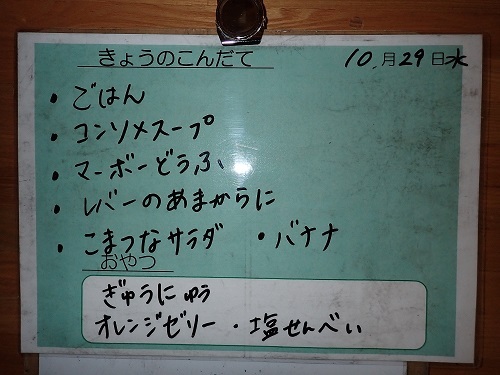 きょうのこんだて 10月29日水
・ごはん
・コンソメスープ
・マーボーどうふ
・レバーのあまからに
・こまつなサラダ ・バナナ
おやつ
ぎゅうにゅう
オレンジゼリー・塩せんべい